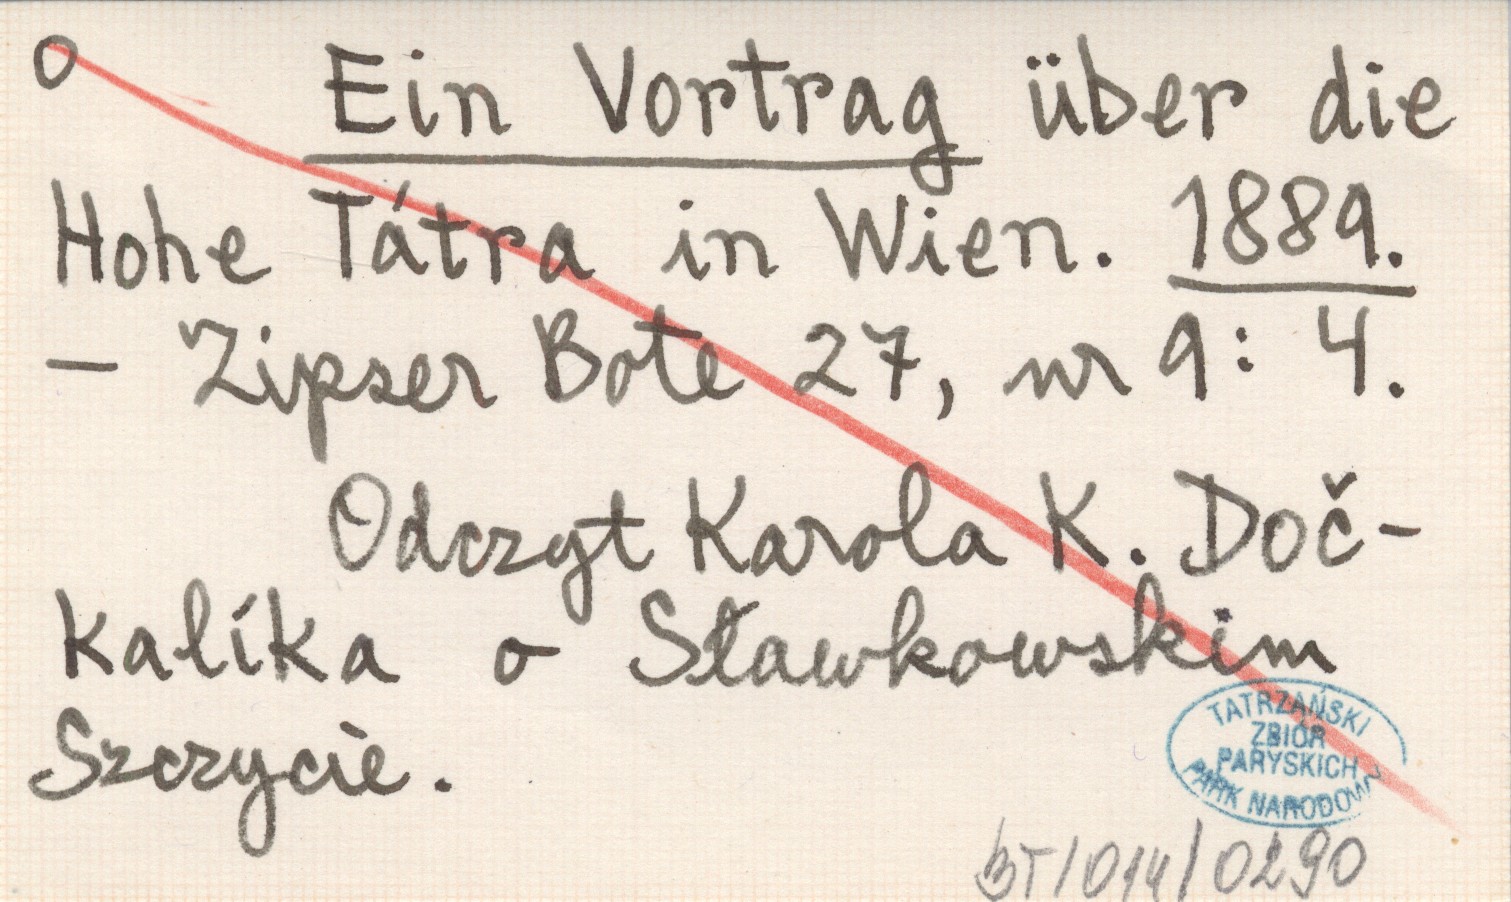 o Ein Vortrag über die
Hohe Tátra in Wien. 1889.
– Zipser Bote 27, nr 9: 4.
Odczyt Karola K. Doč-
kalíka o Sławkowskim
Szczycie.
TATRZAŃSKI
ZBIÓR
PARYSKICH
PARK NARODOWY
BT/014/0290